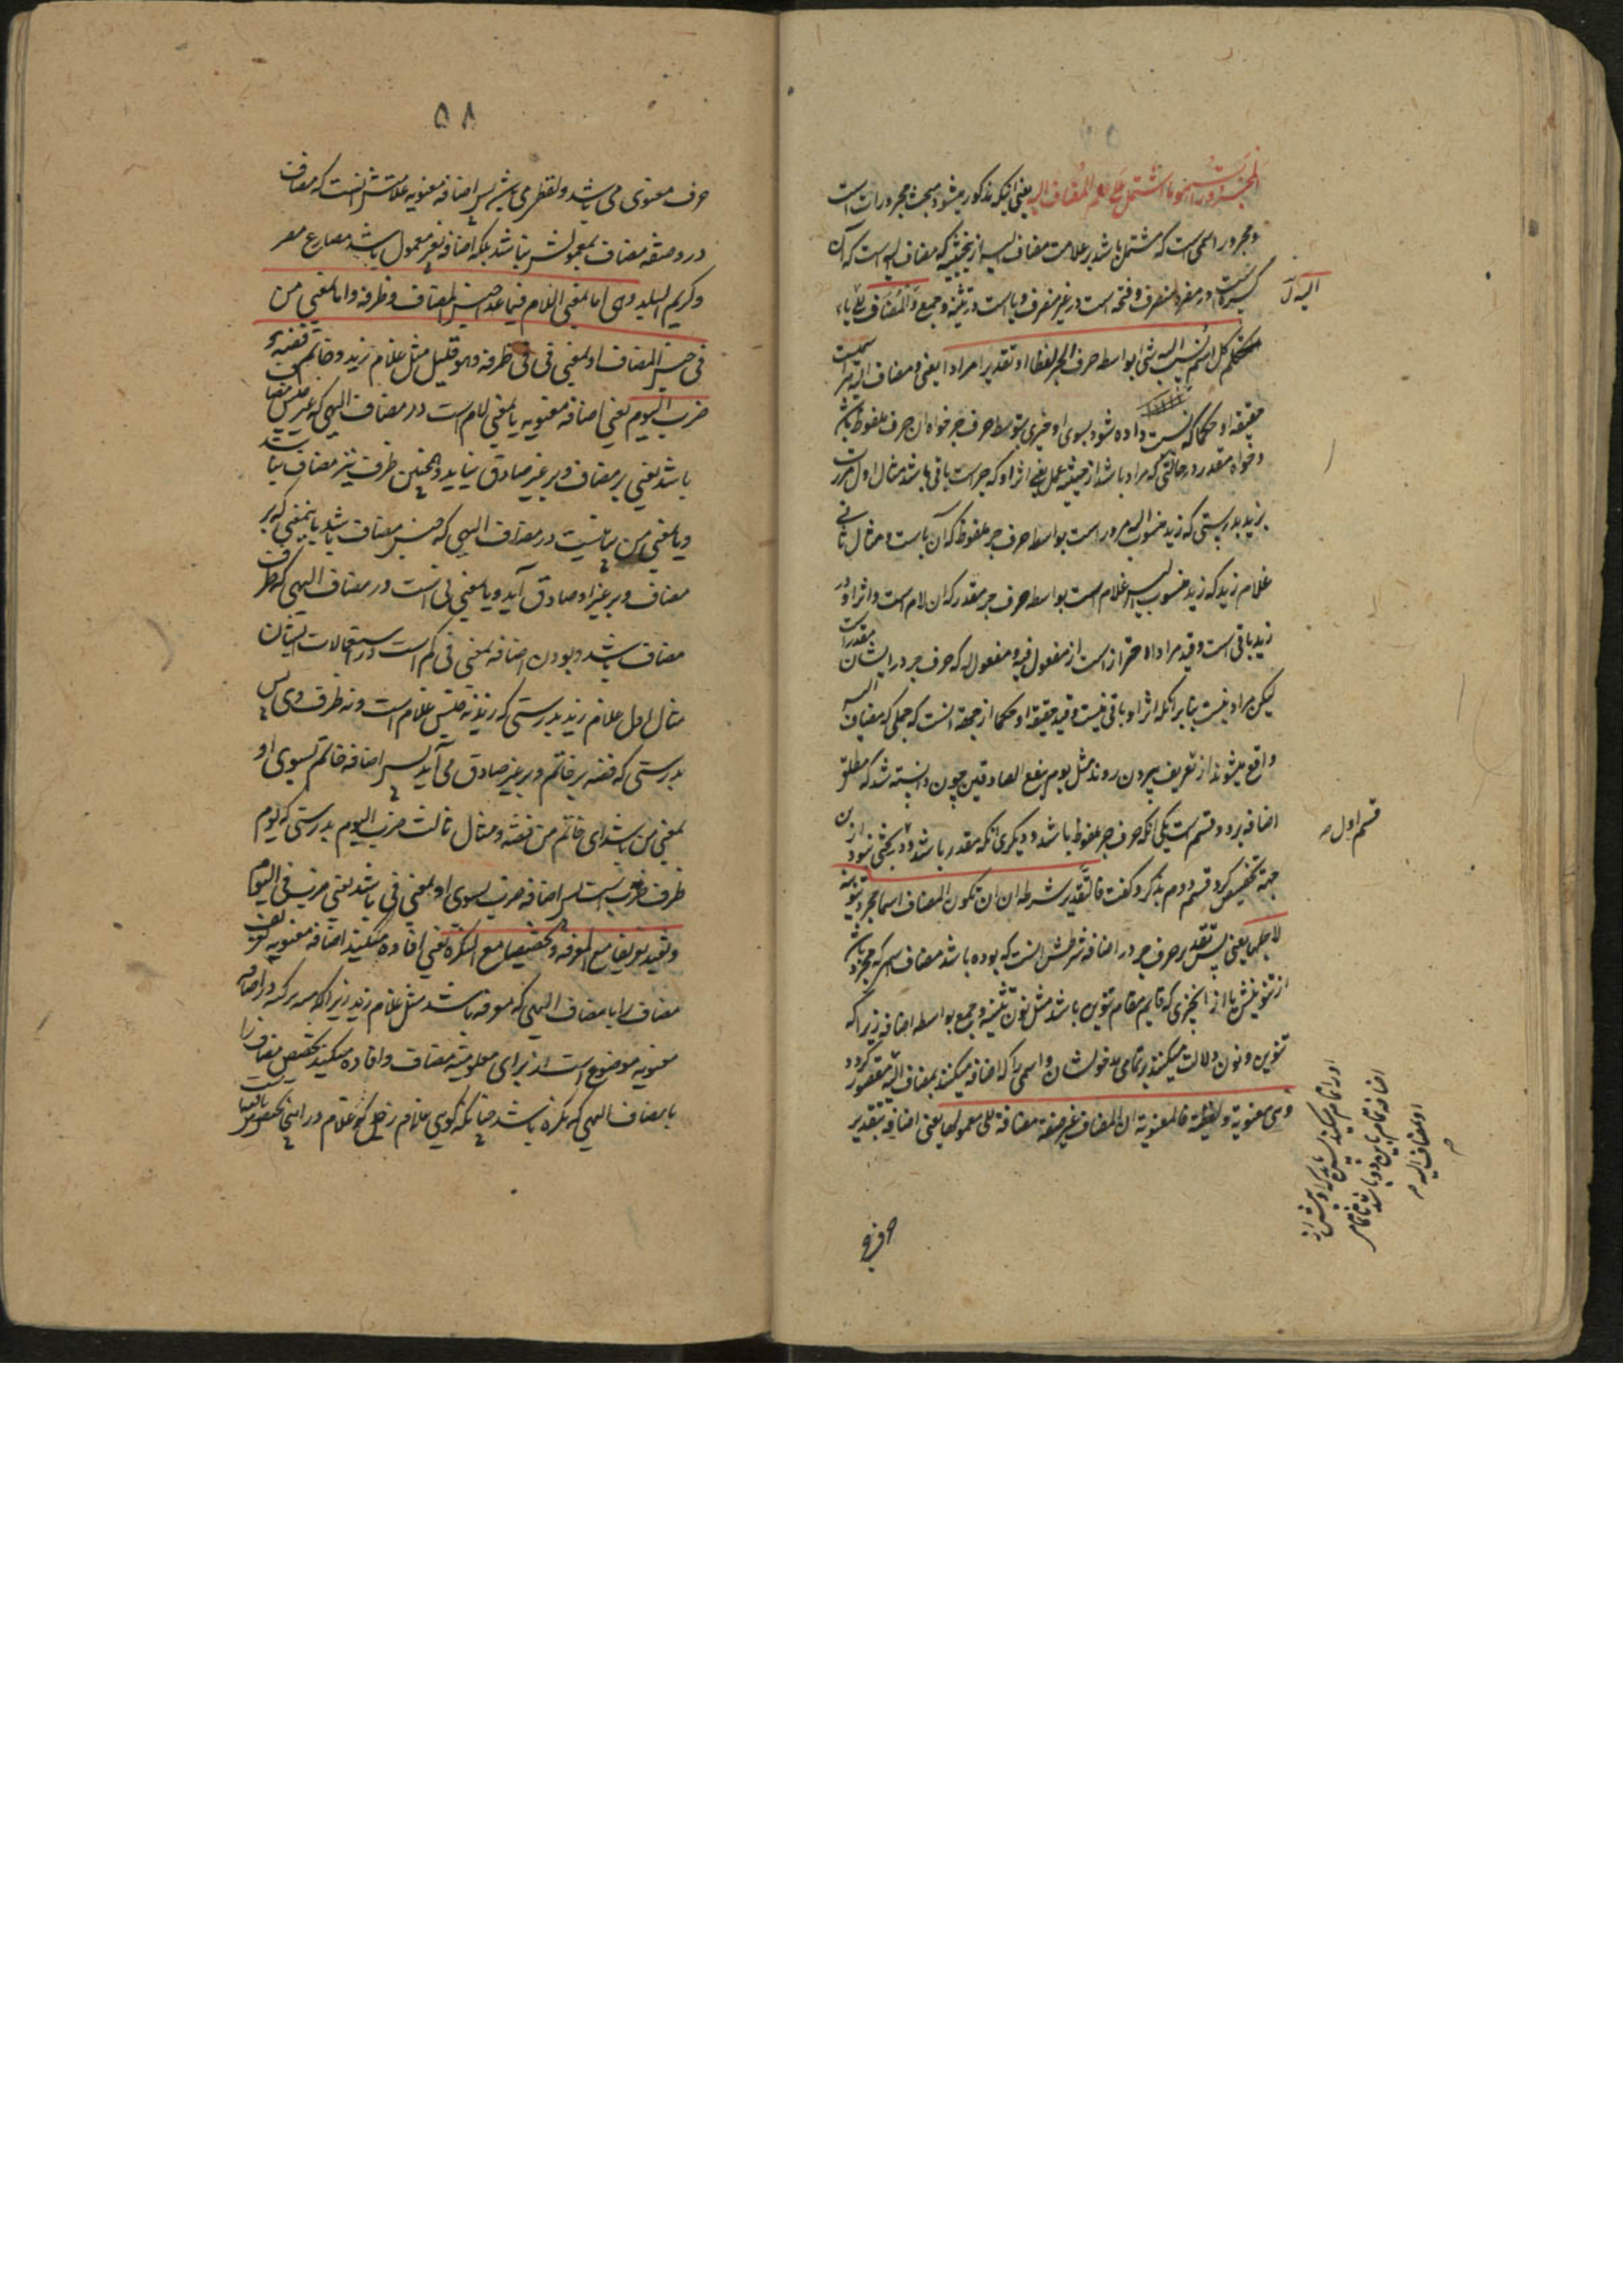 المجرورات هو ما اشتمل علی علم المضاف الیه یعنی اینکه مذکور میشود مبحث مجرورات است
و مجرور اسمی است که مشتمل باشد بر علامت مضاف الیه از حیثیتی که مضاف الیه است که آن
کسره است در مفرد منصرف و فتحه است در غیر منصرف و یا است در تثنیه و جمع والمضاف
کل اسم نسب الیه شی بواسطه حرف الجر لفظا او تقدیرا مرادا یعنی و مضاف الیه هر اسمیست
حقیقة او حکما که نسبت داده شود بسوی او چیزی بتوسط حرف جر خواه آن حرف ملفوظ باشد
و خواه مقدر در حالتی که مراد باشد از حیثیت عمل یعنی اثر او که جر است باقی باشد مثال اول مررت
بزید بدرستی که زید منسوب الیه مرور است بواسطه حرف جر ملفوظ که آن باست و مثال ثانی
غلام زید که زید منسوب الیه غلام است بواسطه حرف جر مقدر که آن لام است و اثر او در
زید باقی است و قید مرادا احتراز است از مفعول فیه و مفعول له که حرف جر در ایشان مقدر است
لیکن مراد نیست بنابر آنکه اثر او باقی نیست و قید حقیقة او حکما از جهة آنست که جملی که مضاف الیه
واقع میشوند از تعریف بیرون روند مثل یوم ینفع الصادقین چون دانسته شد که مطلق
اضافه بر دو قسم است یکی آنکه حرف جر ملفوظ باشد و دیگری آنکه مقدر باشد و بحثی نبود از این
جهة تخصیص کرد قسم دوم بذکر و گفت فالتقدیر شرطه ان یکون المضاف اسما مجردا تنوینه
لاجلها یعنی پس تقدیر حرف جر در اضافه شرطش آنست که بوده باشد مضاف اسمی که مجرد باشد
از تنوینش یا از آنچیزی که قایم مقام تنوین باشد مثل نون تثنیه و جمع بواسطه اضافه زیرا که
تنوین و نون دلالت میکنند بر تمامی مدخولشان و اسمی را که اضافه میکنند بمضاف الیه مقصور گردد
وهی معنویة ولفظیة فالمعنویة ان یکون المضاف غیر صفة مضافة الی معمولها یعنی اضافه بتقدیر
الیه
قسم اول
اضافه تمام باین دو باشد
او لمضاف الیه
حرف
۵۸
حرف معنوی می باشد و لفظی می باشد پس اضافه معنویه علامتش آنست که مضاف
در و صفة مضاف بمعمولش نباشد بلکه اضافه بغیر معمول باشد مصارع مصر
وکریم البلد وهی اما بمعنی اللام فیما عدا جنس المضاف وظرفه واما بمعنی من
فی جنس المضاف او بمعنی فی فی ظرفه وهو قلیل مثل غلام زید وخاتم فضه و
ضرب الیوم یعنی اضافه معنویه یا بمعنی لام است در مضاف الیهی که غیر جنس مضاف
باشد یعنی بر مضاف و بر غیر صادق نیاید و همچنین ظرف نیز مضاف نباشد
و یا بمعنی من بیانیست در مضاف الیهی که جنس مضاف باشد باینمعنی که بر
مضاف و بر غیر او صادق آید و یا بمعنی فی است در مضاف الیهی که ظرف
مضاف باشد و بودن اضافه بمعنی فی کم است در استعمالات ایشان
مثال اول غلام زید بدرستی که زید نه جنس غلام است و نه ظرف وی
بدرستی که فضه بر خاتم و بر غیر صادق می آید پس اضافه خاتم بسوی او
بمعنی من باشد ای خاتم من فضه و مثال ثالث ضرب الیوم بدرستی که یوم
ظرف ضرب است پس اضافه ضرب بسوی او بمعنی فی باشد یعنی ضرب فی الیوم
وتفید تعریفا مع المعرفه وتخصیصا مع النکره یعنی افاده میکند اضافه معنویه تعریف
مضاف را با مضاف الیهی که معرفه باشد مثل غلام زید زیرا که
معنویه موضوع است از برای معلومیة مضاف و افاده میکند تخصیص مضاف را
با مضاف الیهی که نکره باشد چنانکه گوی غلام رجل که غلام در